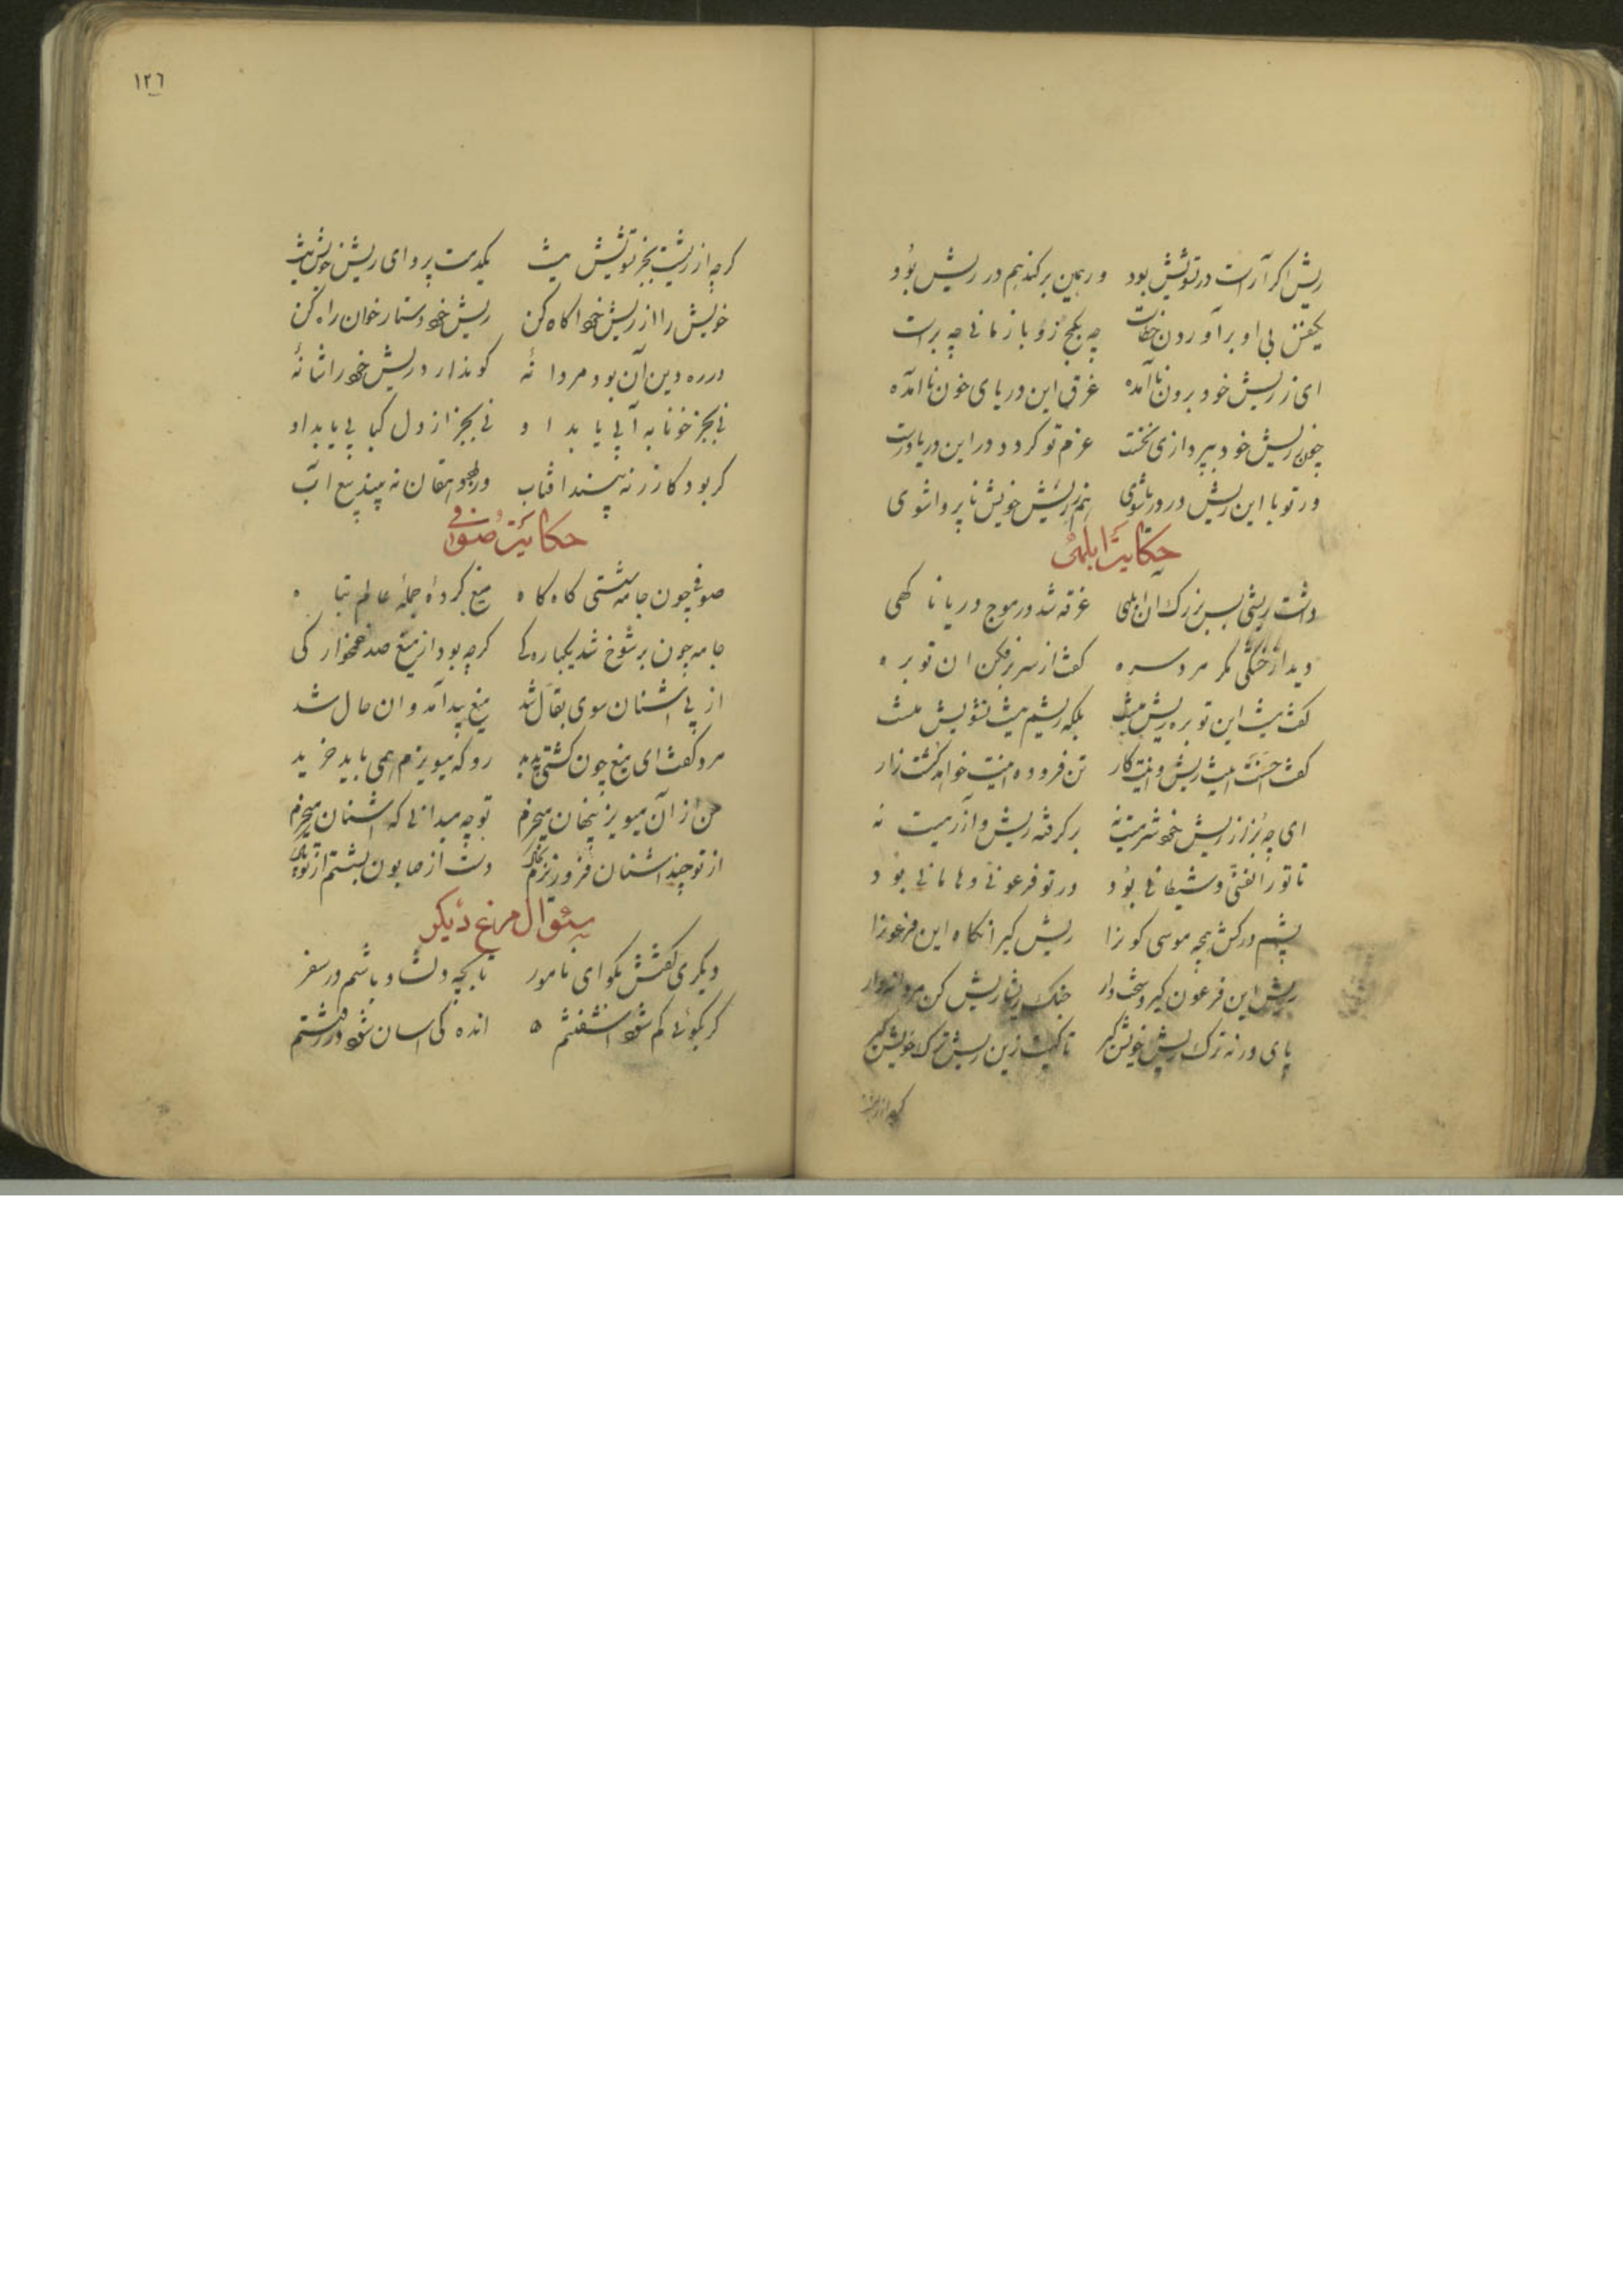 ریش اگر آراست در تشویش بود ور همین برکند هم در ریش بود
یکنفس بی او برآوردن خطاست چه بکج زو باز مانی چه براست
ای ز ریش خود برون ناآمده غرق این دریای خون ناآمده
چون ز ریش خود بپردازی نخست عزم تو کردد در این دریا درست
ور تو با این ریش در دریا شوی هم ز ریش خویش ناپروا شوی
حکایت ابلهی
داشت ریشی بس بزرک آن ابلهی غرقه شد در موج دریا ناکهی
دیدش از خشکی مکر مردی سره کفت از سر برفکن آن توبره
کفت نیست این توبره ریش منست بلکه ریشم نیست تشویش منست
کفت احسنت اینت ریش و اینت کار تن فروده اینت خواهد کشت زار
ای چو بز از ریش خود شرمیت نه برکرفته ریش و آزرمیت نه
تا تو را نفسی و شیطانی بود در تو فرعونی و هامانی بود
پشم درکش همچو موسی کون را ریش کیر آنکاه این فرعون را
ریش این فرعون کیر و سخت دار جنک ریشاریش کن مردانه‌وار
پای در نه ترک ریش خویش کیر تا کیت زین ریش ترک خویش کیر
کرچه از ریشت
١٢٦
کرچه از ریشت بجز تشویش نیست یکدمت پروای ریش خویش نیست
خویش را از ریش خود آکاه کن ریش خود دستار خوان راه کن
در ره دین آن بود مردانهٔ کو ندارد ریش خود را شانهٔ
نی بجز خونابه آبی یابد او نی بجز از دل کبابی یابد او
کر بود کازر نه بیند آفتاب ور بود دهقان نه بیند میغ آب
حکایت صوفی
صوفی چون جامه شستی کاه کاه میغ کردی جمله عالم تباه
جامه چون پر شوخ شد یکبارکی کرچه بود از میغ صد غمخوارکی
از پی اشنان سوی بقال شد میغ پیدا آمد و آن حال شد
مرد کفت ای میغ چون کشتی پدید رو که میویزم همی باید خرید
من از آن میویز پنهان میخرم تو چه میدانی که اشنان میخرم
از تو چند اشنان فرو ریزم بخاک دست از صابون بشستم از تو پاک
سئوال مرغ دیکر
دیکری کفتش بکو ای نامور تا بچه دلشاد باشم در سفر
کر بکوئی کم شود آشفتنم اندکی آسان شود در رفتنم